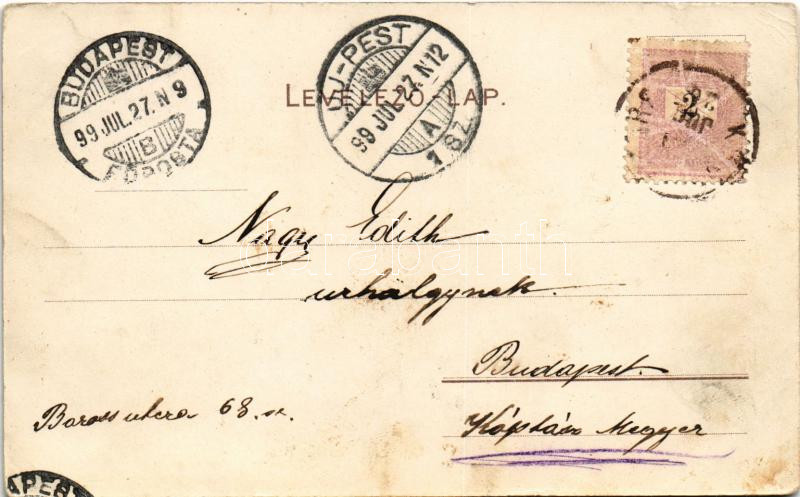 BUDAPEST
99 JUL. 27. N 9
B
FŐPOSTA
UJ-PEST
99 JUL. 27. N 12
A
1 SZ.
LEVELEZŐ-LAP.
2
Nagy Edith
urhölgynek.
Budapest.
Baross utcza 68. sz.
Káptásx Megyer
APEST